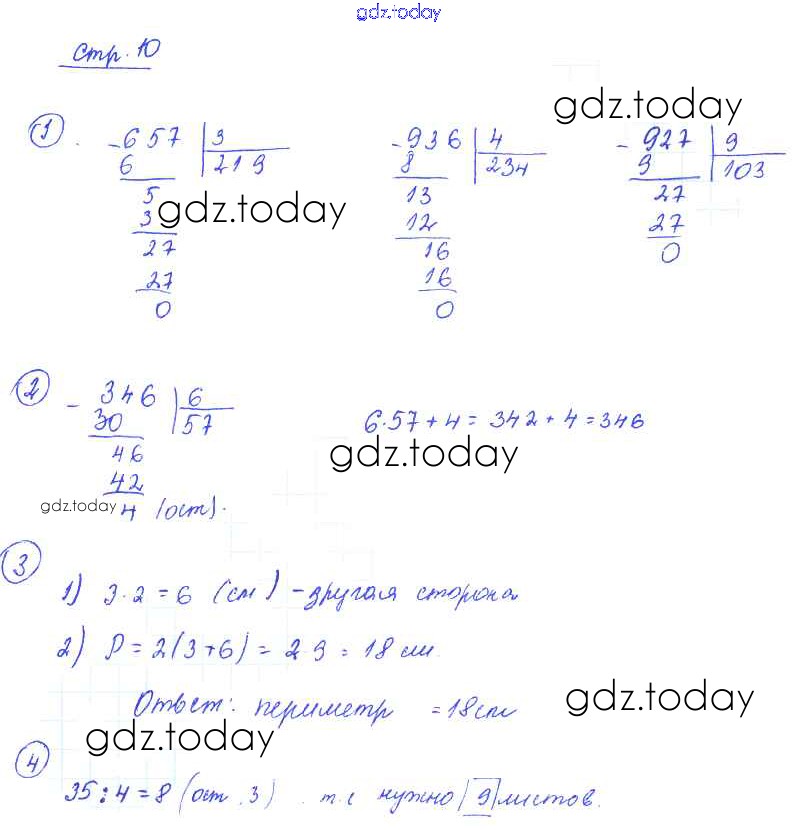 gdz.today
стр. 10
gdz.today
1. -657 | 3   -936 | 4   -927 | 9
6   219   8   234   9   103
5   13   27
3   12   27
gdz.today
27   16   0
27   16
0   0
2 - 346 | 6   6·57+4 = 342+4 = 346
30   57
46   gdz.today
42
gdz.today   4 (ост).
3
1) 3·2=6 (см) - другая сторона
2) P = 2(3+6) = 2·9 = 18 см.
Ответ: периметр = 18 см
gdz.today
gdz.today
4
35:4=8 (ост. 3) . т.е нужно 9 листов.